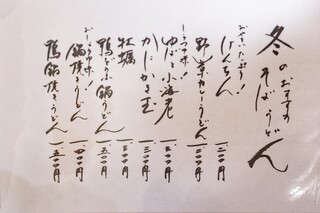 冬のおすすめ
そば・うどん
おやさいたっぷり!
けんちん 一二〇〇円
野菜カレーうどん 一二〇〇円
ゆばと小海老 一三〇〇円
かに・かき玉 一三〇〇円
牡蠣 一三〇〇円
鴨どうふ鍋うどん 一五〇〇円
鍋焼うどん 一四〇〇円
鴨鍋焼うどん 一五〇〇円